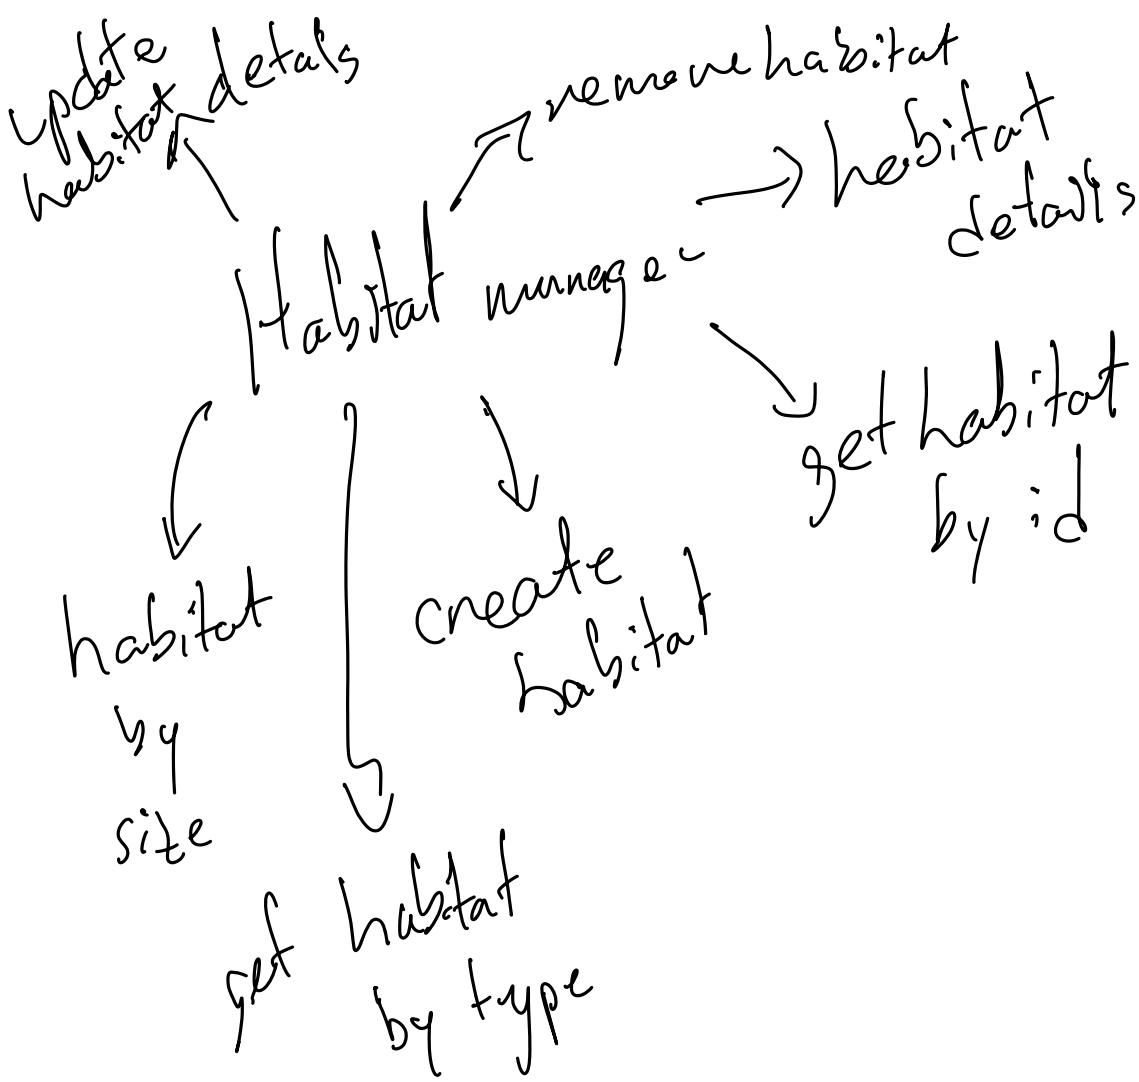 update
habitat details
remove habitat
habitat
details
Habitat manager
get habitat
by id
create
habitat
habitat
by
size
get habitat
by type